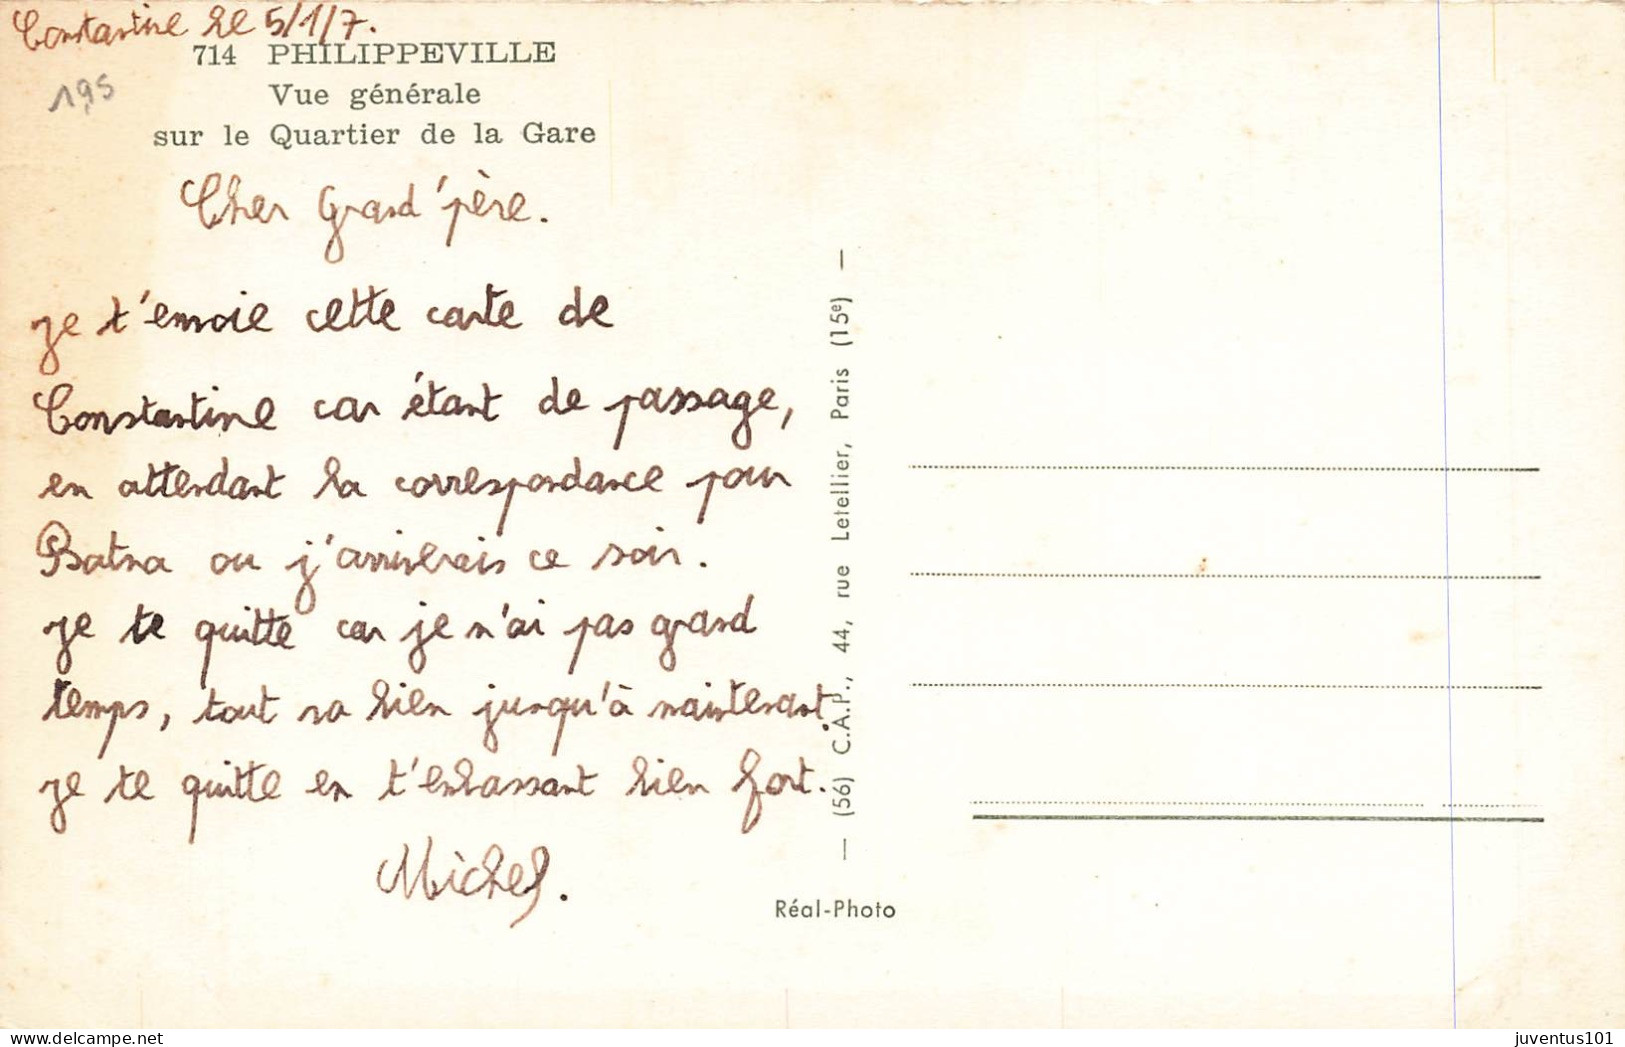 Constantine le 5/1/7.
714 PHILIPPEVILLE
1,95
Vue générale
sur le Quartier de la Gare
Cher Grand'père.
je t'envoie cette carte de
Constantine car étant de passage,
en attendant la correspondance pour
Batna ou j'arriverais ce soir.
je te quitte car je n'ai pas grand
temps, tout va bien jusqu'à maintenant.
je te quitte en t'enbassant bien fort.
Michel.
— (56) C.A.P., 44, rue Letellier, Paris (15e) —
Réal-Photo
juventus101